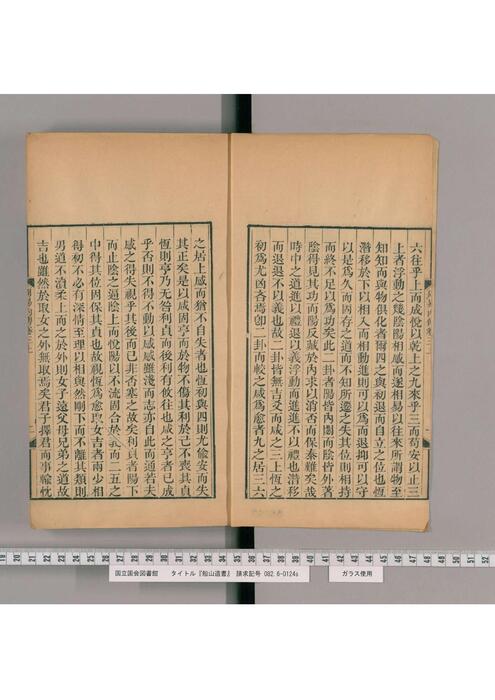 六往乎上而成悅以乾上之九來乎三而苟安以止三
上者浮動之幾陰陽相感而遂相易以往來所謂物至
知知而與物俱化者爾四之與初退而自立之位也恆
潛移於下以相入而相動進則可以爲而退抑可以守
以是爲久而因存之道而不知所遷之失其位則相持
而終不足以爲功矣此二卦者陽皆內閟而陰皆外著
陰得見其功而陽反藏於內求以消否而保泰難矣哉
時中之道進以禮退以義浮動而進進不以禮也潛移
而退退不以義也故二卦皆無吉爻而咸之三上恆之
初爲尤凶吝焉卽二卦而較之咸爲愈者九之居三六
之居上感而猶不自失者也恆初與四則尤偸安而失
其正矣是以咸固亨而於物不傷其利於己不喪其貞
恆則亨乃无咎利貞而後利有攸往也咸之亨者已成
乎否則不得不動以感感雖淺而志亦自此而通若夫
感之得失視乎其後而已非否塞之故矣利貞者陽下
而止陰之逼陰上而悅陽以不流固合於義而二五之
中得其位固保其貞也故視恆爲愈取女吉者兩少相
得初不必有深情至理以相與然剛下而不離其類則
男道不瀆柔上而之於外則女子遠父母兄弟之道故
吉也雖然於取女之外無取焉矣君子擇君而事輸忱
国立国会図書館 タイトル『船山遺書』 請求記号 082.6-0124s ガラス使用